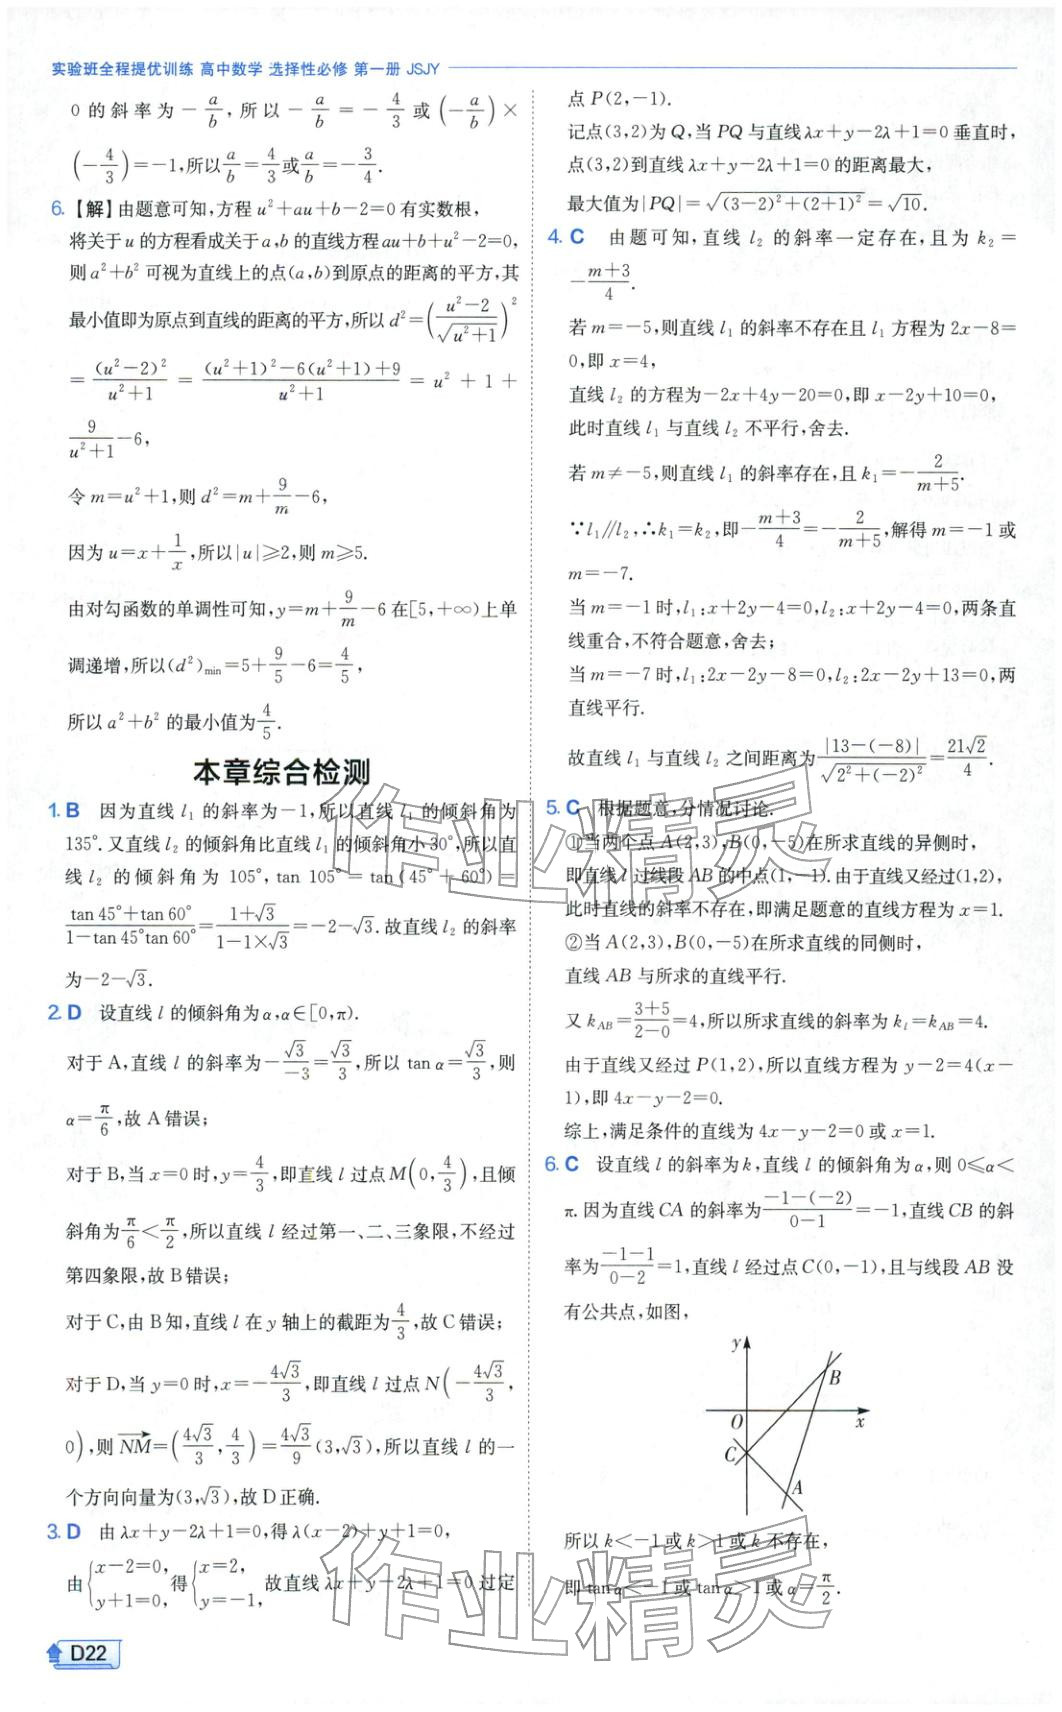 实验班全程提优训练 高中数学 选择性必修 第一册 JSJY
0 的斜率为 −a/b, 所以 −a/b = −4/3 或 (−a/b) ×
(−4/3) = −1, 所以 a/b = 4/3 或 a/b = −3/4.
6. 【解】由题意可知, 方程 u²+au+b−2=0 有实数根,
将关于 u 的方程看成关于 a,b 的直线方程 au+b+u²−2=0,
则 a²+b² 可视为直线上的点(a,b)到原点的距离的平方, 其
最小值即为原点到直线的距离的平方, 所以 d²=((u²−2)/√(u²+1))²
=(u²−2)²/(u²+1) = ((u²+1)²−6(u²+1)+9)/(u²+1) = u²+1+
9/(u²+1)−6,
令 m=u²+1, 则 d²=m+9/m−6,
因为 u=x+1/x, 所以|u|≥2, 则 m≥5.
由对勾函数的单调性可知, y=m+9/m−6 在[5,+∞)上单
调递增, 所以(d²)min=5+9/5−6=4/5,
所以 a²+b² 的最小值为 4/5.
本章综合检测
1. B 因为直线 l₁ 的斜率为−1, 所以直线 l₁ 的倾斜角为
135°. 又直线 l₂ 的倾斜角比直线 l₁ 的倾斜角小 30°, 所以直
线 l₂ 的倾斜角为 105°, tan 105°=tan(45°+60°)=
(tan 45°+tan 60°)/(1−tan 45°tan 60°)=(1+√3)/(1−1×√3)=−2−√3. 故直线 l₂ 的斜率
为−2−√3.
2. D 设直线 l 的倾斜角为 α, α∈[0,π).
对于 A, 直线 l 的斜率为−√3/−3=√3/3, 所以 tan α=√3/3, 则
α=π/6, 故 A 错误;
对于 B, 当 x=0 时, y=4/3, 即直线 l 过点 M(0,4/3), 且倾
斜角为 π/6<π/2, 所以直线 l 经过第一、二、三象限, 不经过
第四象限, 故 B 错误;
对于 C, 由 B 知, 直线 l 在 y 轴上的截距为 4/3, 故 C 错误;
对于 D, 当 y=0 时, x=−4√3/3, 即直线 l 过点 N(−4√3/3,
0), 则 NM→=(4√3/3,4/3)=4√3/9(3,√3), 所以直线 l 的一
个方向向量为(3,√3), 故 D 正确.
3. D 由 λx+y−2λ+1=0, 得 λ(x−2)+y+1=0,
由{x−2=0, y+1=0, 得{x=2, y=−1, 故直线 λx+y−2λ+1=0 过定
D22
点 P(2,−1).
记点(3,2)为 Q, 当 PQ 与直线 λx+y−2λ+1=0 垂直时,
点(3,2)到直线 λx+y−2λ+1=0 的距离最大,
最大值为|PQ|=√((3−2)²+(2+1)²)=√10.
4. C 由题可知, 直线 l₂ 的斜率一定存在, 且为 k₂=
−(m+3)/4.
若 m=−5, 则直线 l₁ 的斜率不存在且 l₁ 方程为 2x−8=
0, 即 x=4,
直线 l₂ 的方程为−2x+4y−20=0, 即 x−2y+10=0,
此时直线 l₁ 与直线 l₂ 不平行, 舍去.
若 m≠−5, 则直线 l₁ 的斜率存在, 且 k₁=−2/(m+5).
∵l₁∥l₂, ∴k₁=k₂, 即−(m+3)/4=−2/(m+5), 解得 m=−1 或
m=−7.
当 m=−1 时, l₁:x+2y−4=0, l₂:x+2y−4=0, 两条直
线重合, 不符合题意, 舍去;
当 m=−7 时, l₁:2x−2y−8=0, l₂:2x−2y+13=0, 两
直线平行.
故直线 l₁ 与直线 l₂ 之间距离为|13−(−8)|/√(2²+(−2)²)=21√2/4.
5. C 根据题意, 分情况讨论.
①当两个点 A(2,3),B(0,−5)在所求直线的异侧时,
即直线 l 过线段 AB 的中点(1,−1). 由于直线又经过(1,2),
此时直线的斜率不存在, 即满足题意的直线方程为 x=1.
②当 A(2,3),B(0,−5)在所求直线的同侧时,
直线 AB 与所求的直线平行.
又 kAB=(3+5)/(2−0)=4, 所以所求直线的斜率为 kl=kAB=4.
由于直线又经过 P(1,2), 所以直线方程为 y−2=4(x−
1), 即 4x−y−2=0.
综上, 满足条件的直线为 4x−y−2=0 或 x=1.
6. C 设直线 l 的斜率为 k, 直线 l 的倾斜角为 α, 则 0≤α<
π. 因为直线 CA 的斜率为(−1−(−2))/(0−1)=−1, 直线 CB 的斜
率为(−1−1)/(0−2)=1, 直线 l 经过点 C(0,−1), 且与线段 AB 没
有公共点, 如图,
y
B
O
x
C
A
所以 k<−1 或 k>1 或 k 不存在,
即 tan α<−1 或 tan α>1 或 α=π/2.
作业精灵
作业精灵